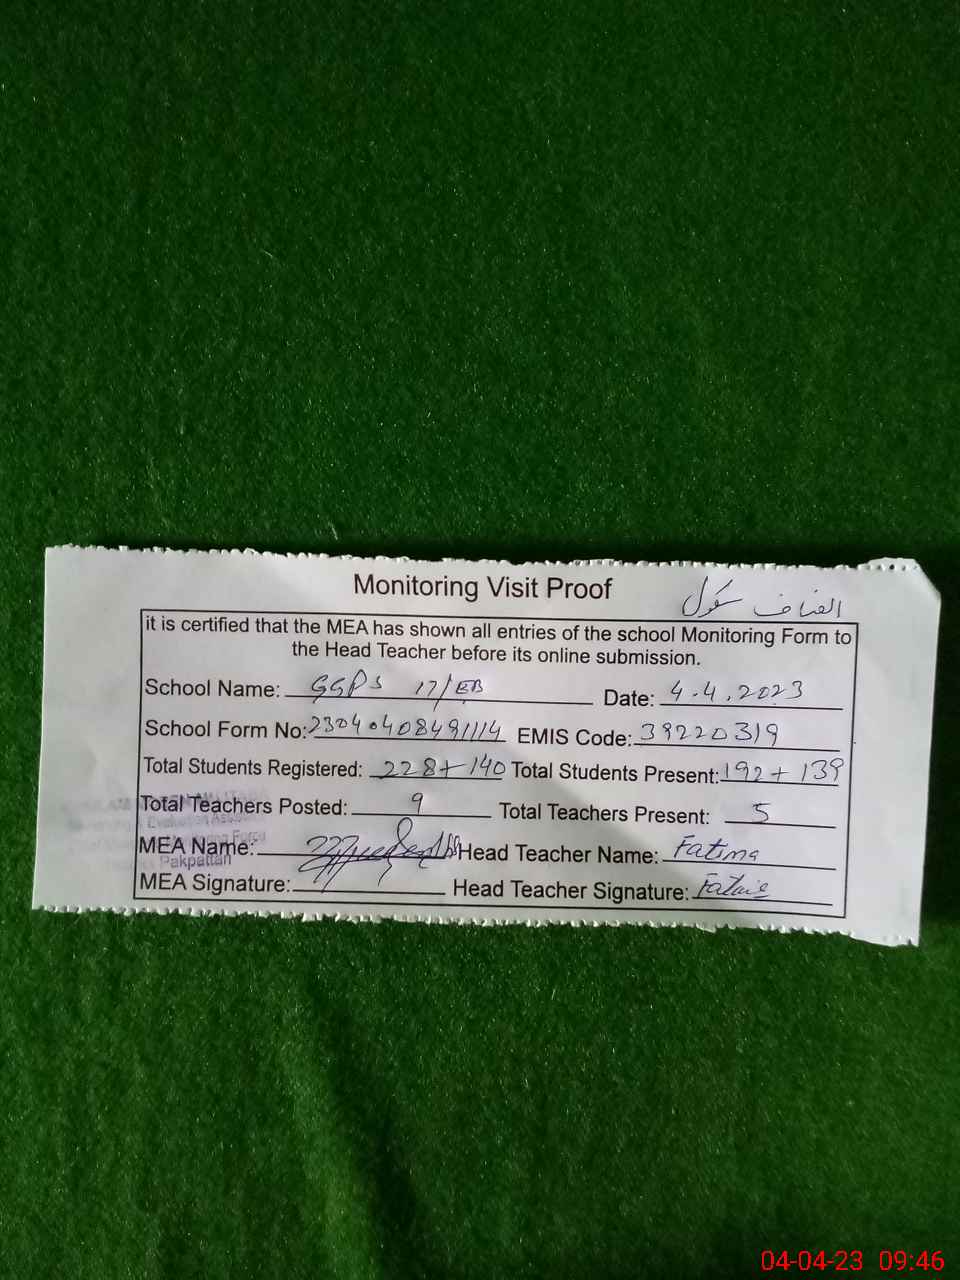 Monitoring Visit Proof
انصاف سکول
it is certified that the MEA has shown all entries of the school Monitoring Form to
the Head Teacher before its online submission.
School Name: GGPS 17/EB Date: 4.4.2023
School Form No: 23040408491114 EMIS Code: 39220319
Total Students Registered: 228+140 Total Students Present: 192+139
Total Teachers Posted: 9 Total Teachers Present: 5
MEA Name: Head Teacher Name: Fatima
Pakpattan
MEA Signature: Head Teacher Signature:
04-04-23 09:46